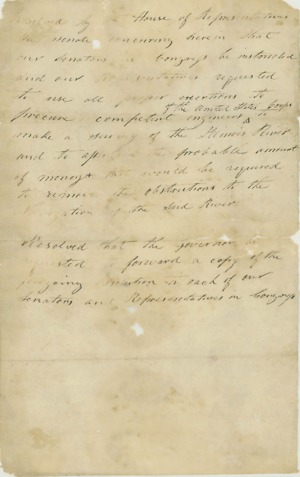 by the House of Representatives
the senate concurring herein that
our Senators in Congress be instructed
and our Representatives requested
to use all proper exertions to
procure a competent engineer of the United States Corps to
make a survey of the Illinois River
and to the probable amount
of moneys that would be required
to remove the obstructions to the
navigation of the said River
Resolved that the governor be
requested to forward a copy of the
foregoing resolution to each of our
Senators and Representatives in Congress